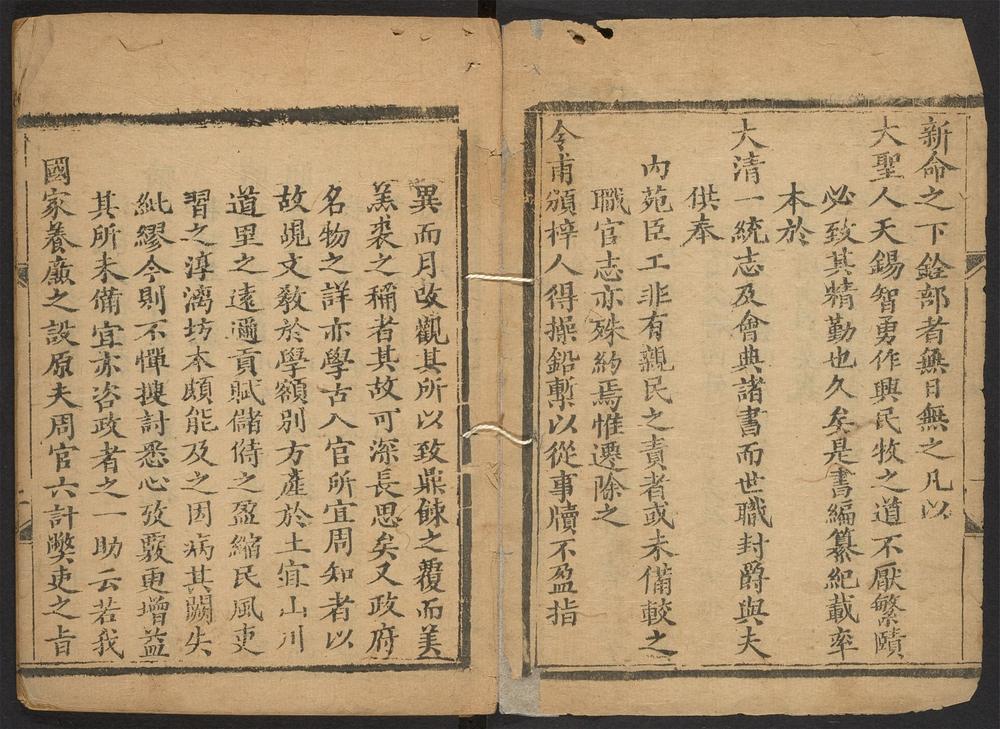 新命之下銓部者無日無之凡以
大聖人天錫智勇作興民牧之道不厭繁賾
必致其精勤也久矣是書編纂紀載率
本於
大清一統志及會典諸書而世職封爵與夫
供奉
內苑臣工非有親民之責者或未備較之
職官志亦殊約焉惟遷除之
令甫頒梓人得操鉛槧以從事牘不盈指
異而月改觀其所以致鼎餗之覆而美
羔裘之稱者其故可深長思矣又政府
名物之詳亦學古入官所宜周知者以
故覘文教於學額別方產於土宜山川
道里之遠邇貢賦儲偫之盈縮民風吏
習之淳漓坊本頗能及之因病其闕失
紕繆今則不憚搜討悉心攷覈更增益
其所未備宜亦咨政者之一助云若我
國家養廉之設原夫周官六計獘吏之旨